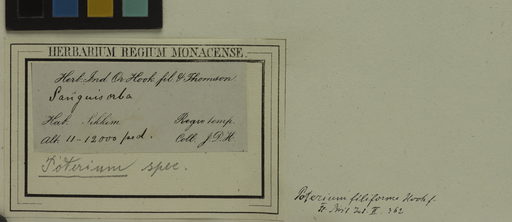 HERBARIUM REGIUM MONACENSE.
Herb. Ind. Or. Hook. fil. & Thomson.
Sanguisorba
Hab. Sikkim Regio temp.
Alt. 11-12000 ped. Coll. J.D.H.
Poterium spec.
Poterium filiforme Hook f.
Fl. Brit. Ind. II. 362